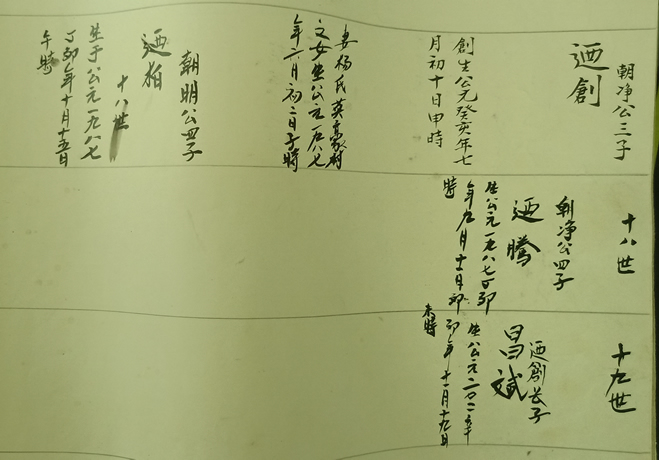 朝净公三子
迺創
創生公元癸亥年七
月初十日申時
妻楊氏英豪村
之女生公元一九八七
年六月初二日子時
朝明公四子
迺柏
十八世
生于公元一九八七
丁卯年十月十五日
午時
十八世
朝净公四子
迺騰
生公元一九八七丁卯
年九月十二日卯
時
十九世
迺創長子
昌斌
生公元二〇一一辛
卯年十一月十九日
未時